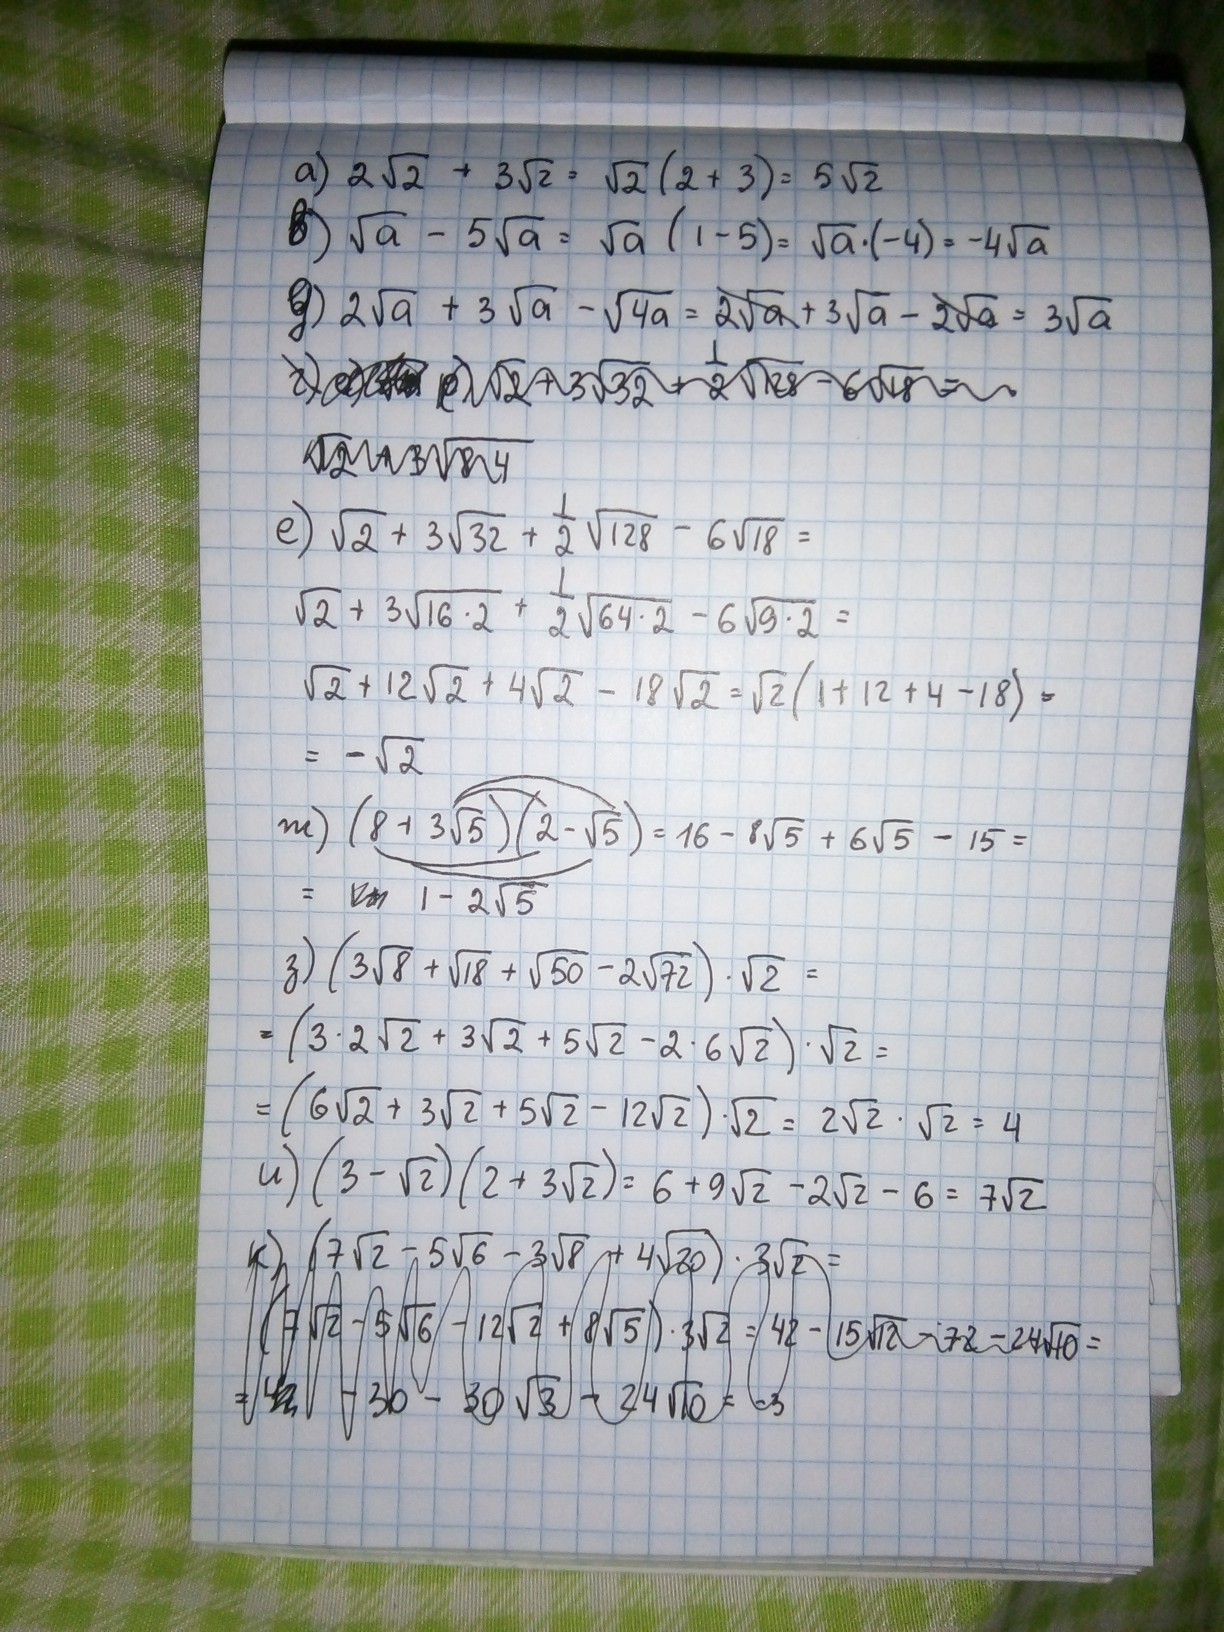 а) 2√2 + 3√2 = √2 (2 + 3) = 5√2
в) √a - 5√a = √a (1 - 5) = √a·(-4) = -4√a
д) 2√a + 3√a - √4a = 2√a + 3√a - 2√a = 3√a
е) √2 + 3√32 + 1/2 √128 - 6√18 =
√2 + 3√8·4
е) √2 + 3√32 + 1/2 √128 - 6√18 =
√2 + 3√16·2 + 1/2 √64·2 - 6√9·2 =
√2 + 12√2 + 4√2 - 18√2 = √2 (1 + 12 + 4 - 18) =
= -√2
ж) (8 + 3√5)(2 - √5) = 16 - 8√5 + 6√5 - 15 =
= 1 - 2√5
з) (3√8 + √18 + √50 - 2√72) · √2 =
= (3·2√2 + 3√2 + 5√2 - 2·6√2) · √2 =
= (6√2 + 3√2 + 5√2 - 12√2) · √2 = 2√2 · √2 = 4
и) (3 - √2)(2 + 3√2) = 6 + 9√2 - 2√2 - 6 = 7√2
к) (7√2 - 5√6 - 3√8 + 4√20) · 3√2 =
(7√2 - 5√6 - 12√2 + 8√5) · 3√2 = 42 - 15√12 - 72 - 24√10 =
= - 30 - 30√3 - 24√10 = -3